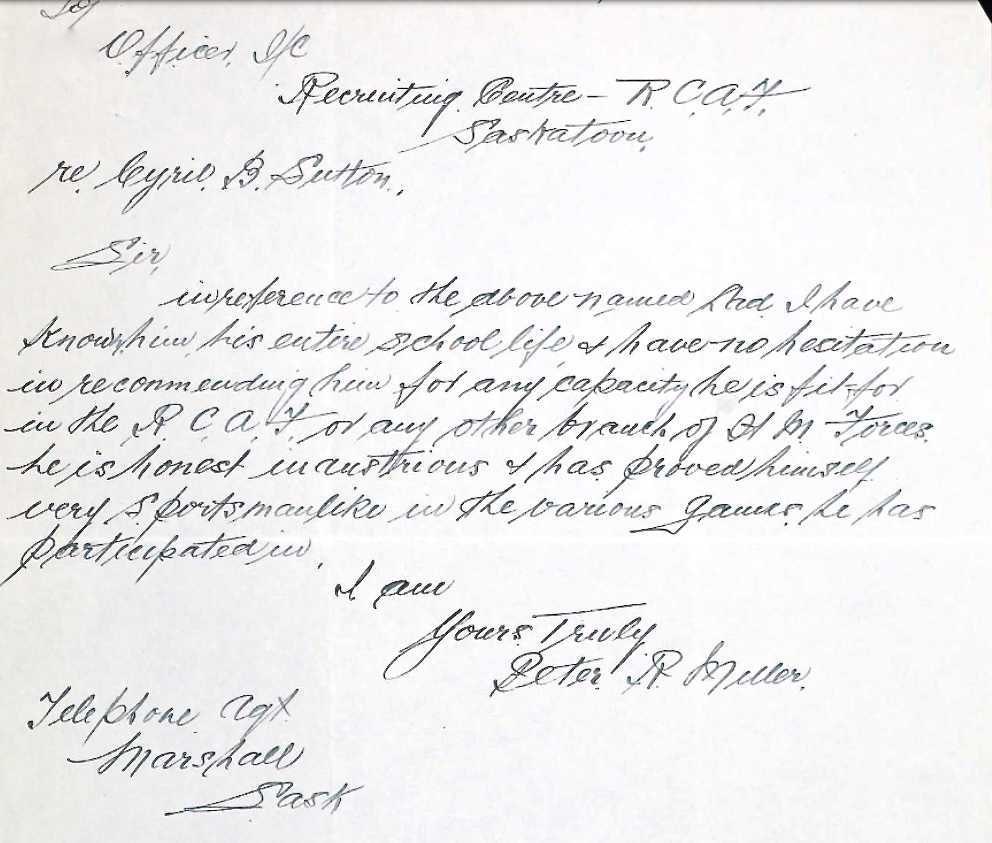 To/
Officer, I/C
Recruiting Centre - R. C. A. F.
Saskatoon,
re, Cyril. B. Sutton.,
Sir,
in reference to the above named Lad, I have
known him his entire school life, & have no hesitation
in recommending him for any capacity he is fit for
in the R. C. A. F. or any other branch of H M Forces.
he is honest industrious & has proved himself
very sportsmanlike in the various games he has
participated in,
I am
Yours Truly
Peter. R. Miller.
Telephone Agt
Marshall
Sask